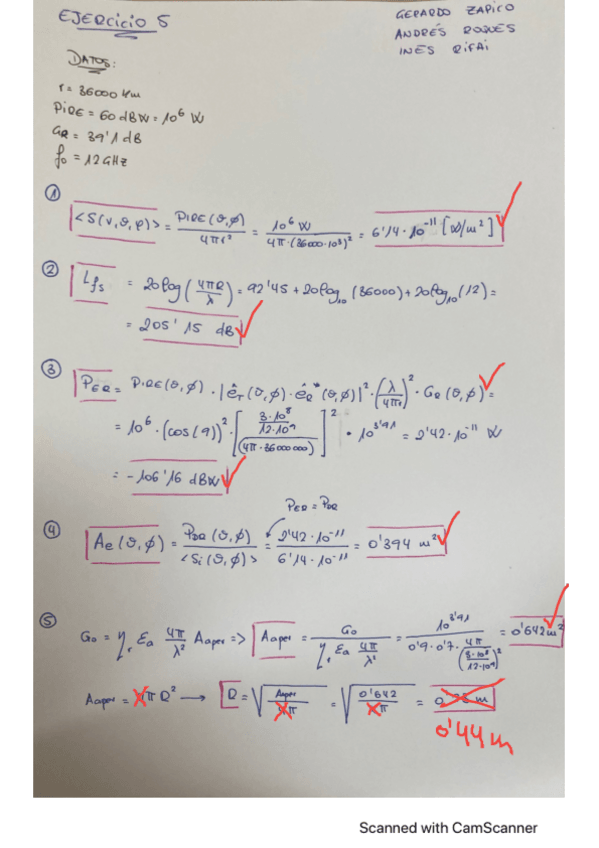 EJERCICIO 5
GERARDO ZAPICO
ANDRÉS ROQUÉS
INÉS RIFAI
DATOS:
r = 36000 km
PIRE = 60 dBW = 10^6 W
GR = 39'1 dB
f0 = 12 GHz
① <S(r,ϑ,φ)> = PIRE(ϑ,ϕ) / 4πr² = 10^6 W / 4π·(36000·10³)² = 6'14·10^-11 [W/m²]
② Lfs = 20log(4πR/λ) = 92'45 + 20log10(36000) + 20log10(12) =
= 205'15 dB
③ PER = PIRE(ϑ,ϕ) · |êT(ϑ,ϕ)·êR*(ϑ,ϕ)|² · (λ/4πr)² · GR(ϑ,ϕ) =
= 10^6 · (cos(9))² · [(3·10^8 / 12·10^9) / (4π·36000000)]² · 10^3'91 = 2'42·10^-11 W
= -106'16 dBW
PER = PDR
④ Ae(ϑ,ϕ) = PDR(ϑ,ϕ) / <Si(ϑ,ϕ)> = 2'42·10^-11 / 6'14·10^-11 = 0'394 m²
⑤ G0 = ηr εa 4π/λ² Aaper => Aaper = G0 / ηr εa 4π/λ² = 10^3'91 / 0'9·0'7· 4π/(3·10^8/12·10^9)² = 0'642 m²
Aaper = 4πR² → R = √(Aaper/4π) = √(0'642/π) =
0'44 m
Scanned with CamScanner